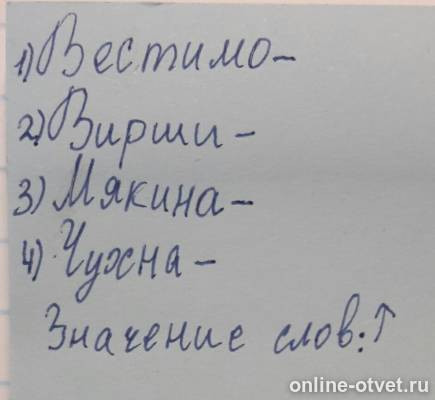 1) Вестимо-
2) Вирши-
3) Мякина-
4) Чухна-
Значение слов:↑
online-otvet.ru